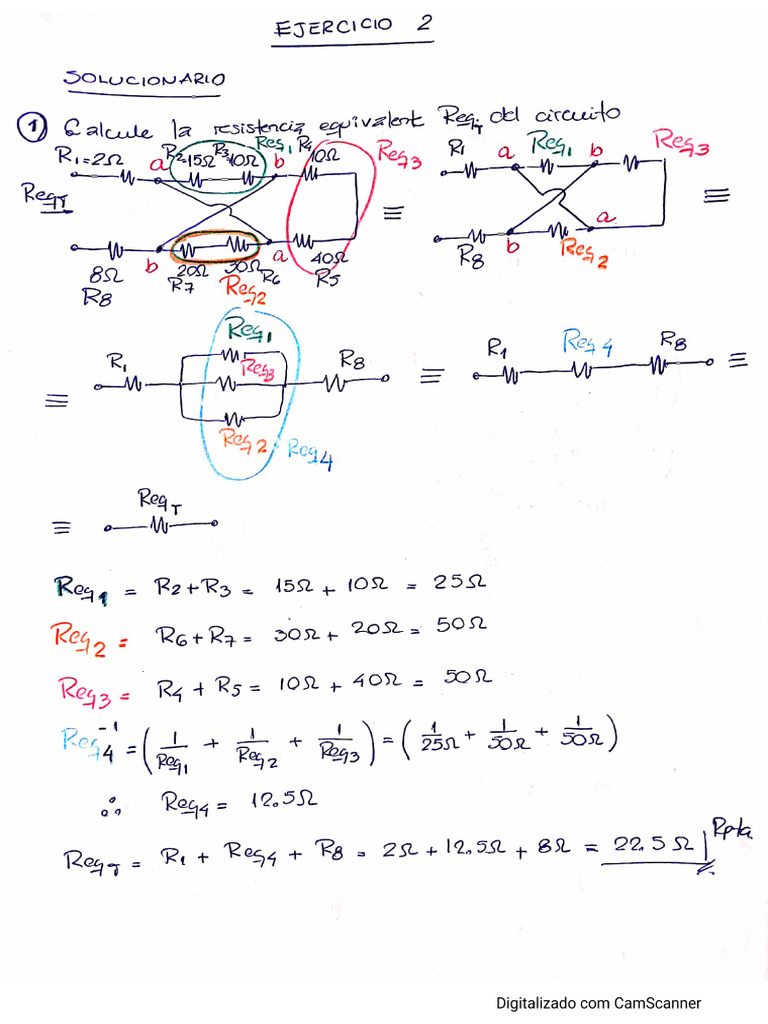 EJERCICIO 2
SOLUCIONARIO
① Calcule la resistencia equivalent ReqT del circuito
R1=2Ω a R2=15Ω R3=10Ω Req1 b R4 10Ω Req3
ReqT ≡
8Ω b 20Ω 30Ω R6 a 40Ω
R8 R7 Req2 R5
R1 a Req1 b Req3
≡
R8 b Req2 a
Req1
R1 Req3 R8
≡ Req2 Req4
≡ R1 Req4 R8 ≡
ReqT
≡
Req1 = R2+R3 = 15Ω + 10Ω = 25Ω
Req2 = R6+R7 = 30Ω + 20Ω = 50Ω
Req3 = R4 + R5 = 10Ω + 40Ω = 50Ω
Req4⁻¹ = (1/Req1 + 1/Req2 + 1/Req3) = (1/25Ω + 1/50Ω + 1/50Ω)
∴ Req4 = 12.5Ω
ReqT = R1 + Req4 + R8 = 2Ω + 12.5Ω + 8Ω = 22.5 Ω Rpta
Digitalizado com CamScanner